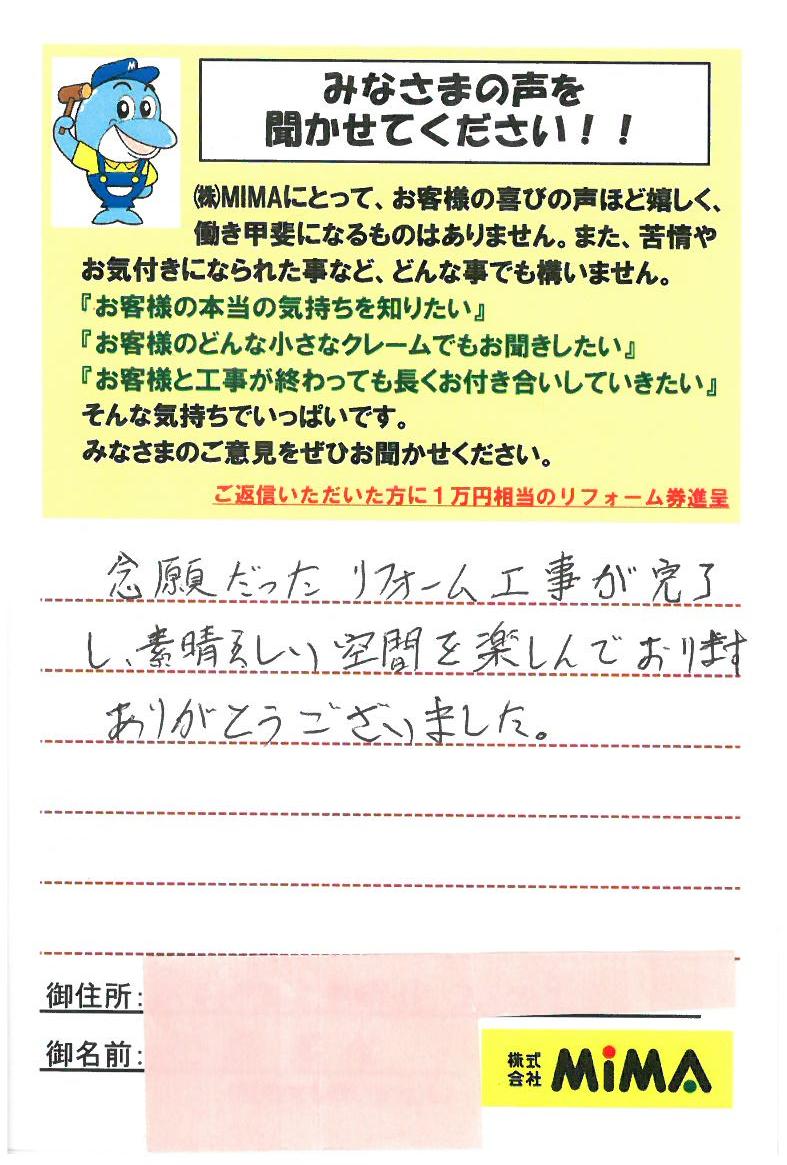 みなさまの声を
聞かせてください！！
㈱MIMAにとって、お客様の喜びの声ほど嬉しく、
働き甲斐になるものはありません。また、苦情や
お気付きになられた事など、どんな事でも構いません。
『お客様の本当の気持ちを知りたい』
『お客様のどんな小さなクレームでもお聞きしたい』
『お客様と工事が終わっても長くお付き合いしていきたい』
そんな気持ちでいっぱいです。
みなさまのご意見をぜひお聞かせください。
ご返信いただいた方に１万円相当のリフォーム券進呈
念願だったリフォーム工事が完了
し、素晴らしい空間を楽しんでおります
ありがとうございました。
御住所:
御名前:
株式会社 MiMA